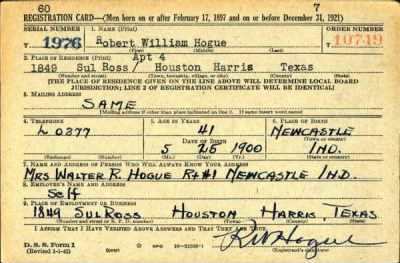 60 7
REGISTRATION CARD—(Men born on or after February 17, 1897 and on or before December 31, 1921)
SERIAL NUMBER 1. NAME (Print) ORDER NUMBER
1976 Robert William Hogue 10749
(First) (Middle) (Last)
2. PLACE OF RESIDENCE (Print) Apt 4
1849 Sul Ross/ Houston Harris Texas
(Number and street) (Town, township, village, or city) (County) (State)
[THE PLACE OF RESIDENCE GIVEN ON THE LINE ABOVE WILL DETERMINE LOCAL BOARD
JURISDICTION; LINE 2 OF REGISTRATION CERTIFICATE WILL BE IDENTICAL]
3. MAILING ADDRESS
SAME
[Mailing address if other than place indicated on line 2. If same insert word same]
4. TELEPHONE 5. AGE IN YEARS 6. PLACE OF BIRTH
L 0377 41 NEWCASTLE
DATE OF BIRTH (Town or county)
5 26 1900 IND.
(Exchange) (Number) (Mo.) (Day) (Yr.) (State or country)
7. NAME AND ADDRESS OF PERSON WHO WILL ALWAYS KNOW YOUR ADDRESS
MRS WALTER R. HOGUE Rt#1 NEWCASTLE IND.
8. EMPLOYER'S NAME AND ADDRESS
Self
9. PLACE OF EMPLOYMENT OR BUSINESS
1849 SUL ROSS HOUSTON HARRIS, TEXAS
(Number and street or R. F. D. number) (Town) (County) (State)
I AFFIRM THAT I HAVE VERIFIED ABOVE ANSWERS AND THAT THEY ARE TRUE.
D. S. S. Form 1
(Revised 1-1-42) (over) GPO 16—21630-1 RW Hogue
(Registrant's signature)